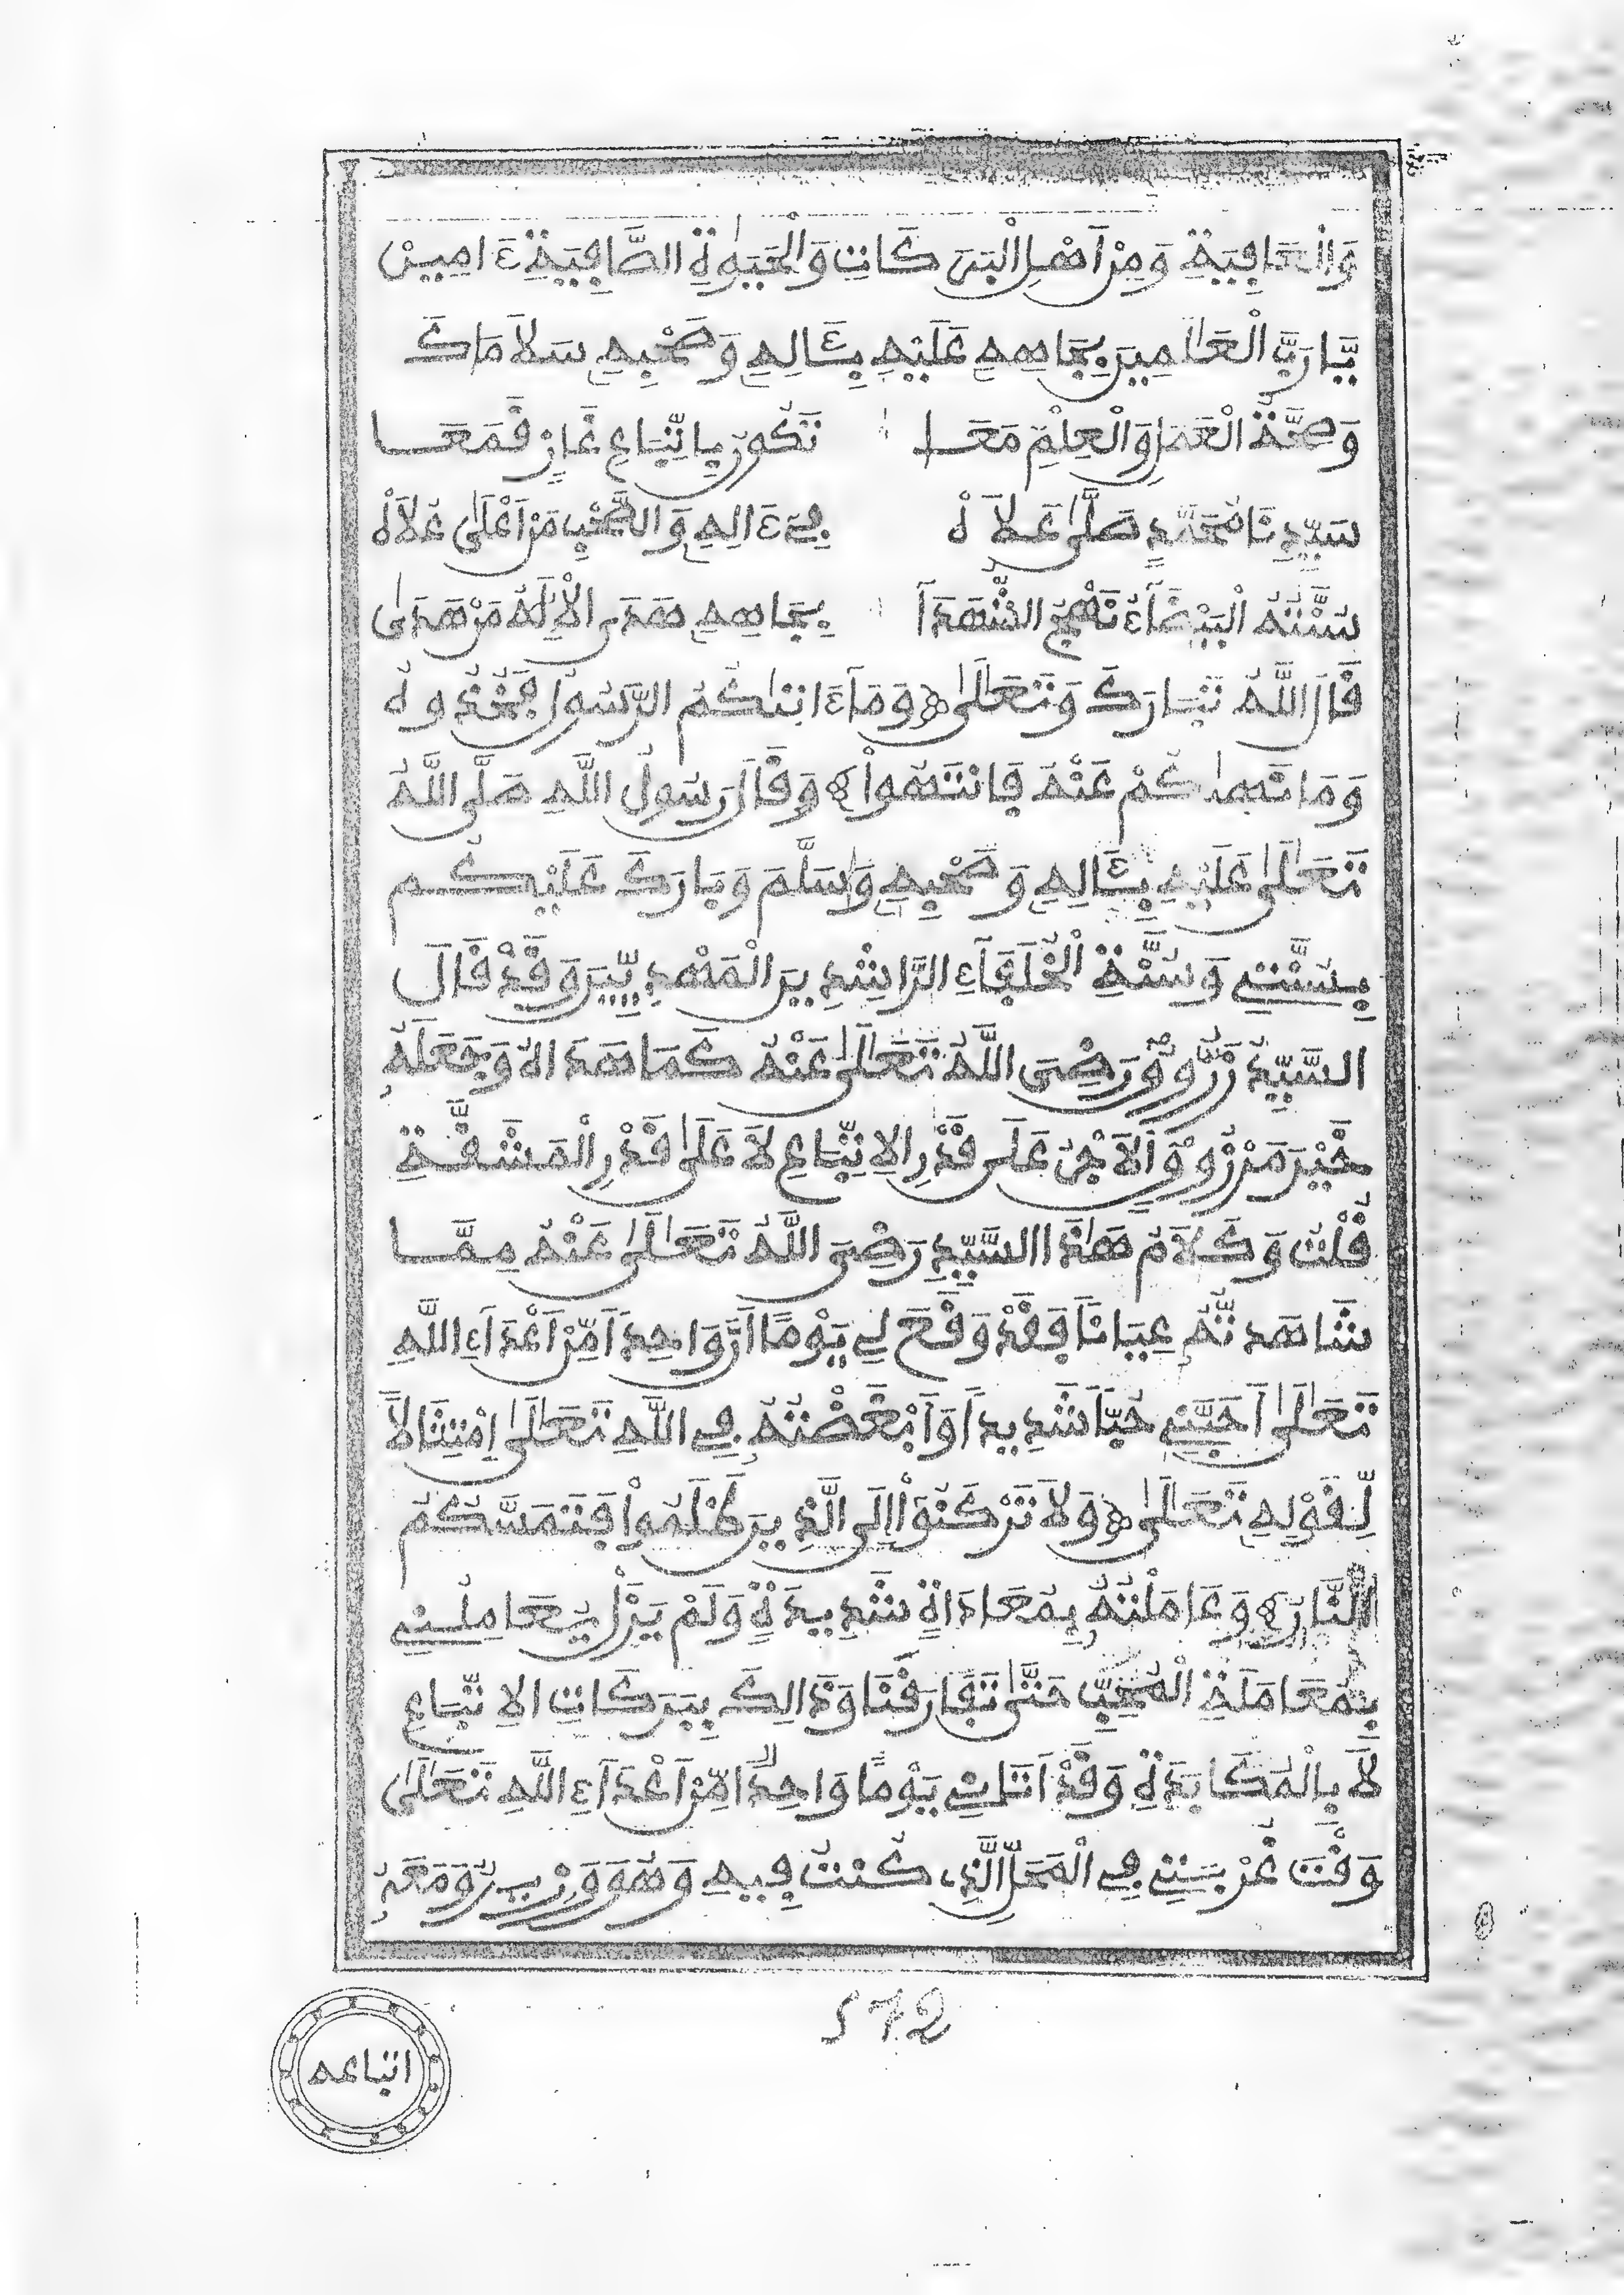 وَالْعَافِيَةِ وَمِنْ اَهْلِ الْبَرَكَاتِ وَالْحَيَوٰةِ الصَّافِيَةِ ءَامِينْ
يَّارَبَّ الْعَالَمِينَ بِجَاهِهِ عَلَيْهِ بِـَٔالِهِ وَصَحْبِهِ سَلَامَاكَ
وَصِحَّةُ الْعَمَلِ وَالْعِلْمِ مَعَا تَكُونُ بِاتِّبَاعِ غَازٍ قَمَعَا
سَيِّدِنَا مُحَمَّدٍ صَلَّى عَلَاهْ فِي ءَالِهِ وَالصَّحْبِ مَنْ اَعْلَى عُلَاهْ
سُنَّتُهُ الْبَيْضَاءُ نَهْجُ الشُّهَدَا بِجَاهِهِ هَدَى الْإِلَهُ مَنْ هَدَى
قَالَ اللَّهُ تَبَارَكَ وَتَعَالَىٰ ﴿وَمَآ ءَاتَىٰكُمُ الرَّسُولُ فَخُذُوهُ
وَمَا نَهَىٰكُمْ عَنْهُ فَانْتَهُواْ﴾ وَقَالَ رَسُولُ اللَّهِ صَلَّى اللَّهُ
تَعَالَىٰ عَلَيْهِ بِـَٔالِهِ وَصَحْبِهِ وَسَلَّمَ وَبَارَكَ عَلَيْكُم
بِسُنَّتِي وَسُنَّةِ الْخُلَفَاءِ الرَّاشِدِينَ الْمَهْدِيِّينَ وَقَدْ قَالَ
السَّيِّدُ زَرُّوقُ رَضِيَ اللَّهُ تَعَالَىٰ عَنْهُ كَمَا هَدَاهُ وَجَعَلَهُ
خَيْرَ مَرْزُوقٍ اَلْاَجْرُ عَلَى قَدْرِ الِاتِّبَاعِ لَا عَلَىٰ قَدْرِ الْمَشَقَّةِ
قُلْتُ وَكَلَامُ هَٰذَا السَّيِّدِ رَضِيَ اللَّهُ تَعَالَىٰ عَنْهُ مِمَّا
شَاهَدتُّهُ عِيَانًا فَقَدْ وَقَعَ لِي يَوْمًا اَنَّ وَاحِدًا مِّنْ اَعْدَاءِ اللَّهِ
تَعَالَىٰ اَحَبَّنِي حُبًّا شَدِيدًا وَاَبْغَضْتُهُ فِي اللَّهِ تَعَالَىٰ اِمْتِثَالًا
لِّقَوْلِهِ تَعَالَىٰ ﴿وَلَا تَرْكَنُوٓاْ إِلَى الَّذِينَ ظَلَمُواْ فَتَمَسَّكُمُ
النَّارُ﴾ وَعَامَلْتُهُ بِمُعَادَاةٍ شَدِيدَةٍ وَلَمْ يَزَلْ يُعَامِلُنِي
بِمُعَامَلَةِ الْمُحِبِّ حَتَّىٰ تَفَارَقْنَا وَذَالِكَ بِبَرَكَاتِ الِاتِّبَاعِ
لَا بِالْمُكَابَدَةِ وَقَدْ اَتَانِي يَوْمًا وَاحِدٌ مِّنْ اَعْدَاءِ اللَّهِ تَعَالَىٰ
وَقْتَ غُرْبَتِي فِي الْمَحَلِّ الَّذِي كُنتُ فِيهِ وَهُوَ وَمَعَهُ
572
اتباعه